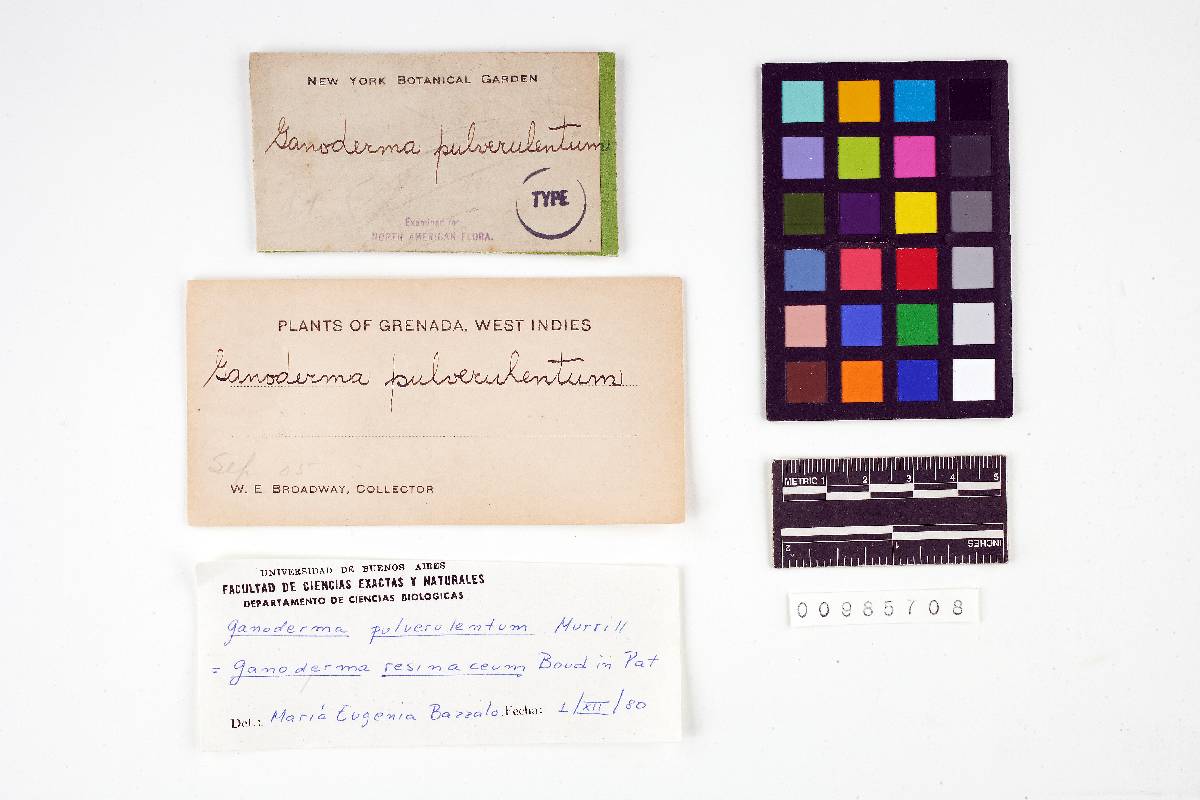 NEW YORK BOTANICAL GARDEN
Ganoderma pulverulentum
TYPE
Examined for
NORTH AMERICAN FLORA.
PLANTS OF GRENADA, WEST INDIES
Ganoderma pulverulentum
Sep. 05
W. E. BROADWAY, COLLECTOR
UNIVERSIDAD DE BUENOS AIRES
FACULTAD DE CIENCIAS EXACTAS Y NATURALES
DEPARTAMENTO DE CIENCIAS BIOLOGICAS
Ganoderma pulverulentum Murrill
= Ganoderma resinaceum Boud in Pat
Det.: María Eugenia Bazzalo. Fecha: 1/XII/80
METRIC 1 2 3 4 5
2 1 INCHES
00985708